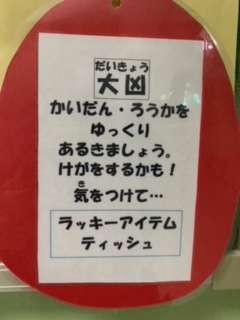 だいきょう
大凶
かいだん・ろうかを
ゆっくり
あるきましょう。
けがをするかも！
き
気をつけて…
ラッキーアイテム
ティッシュ